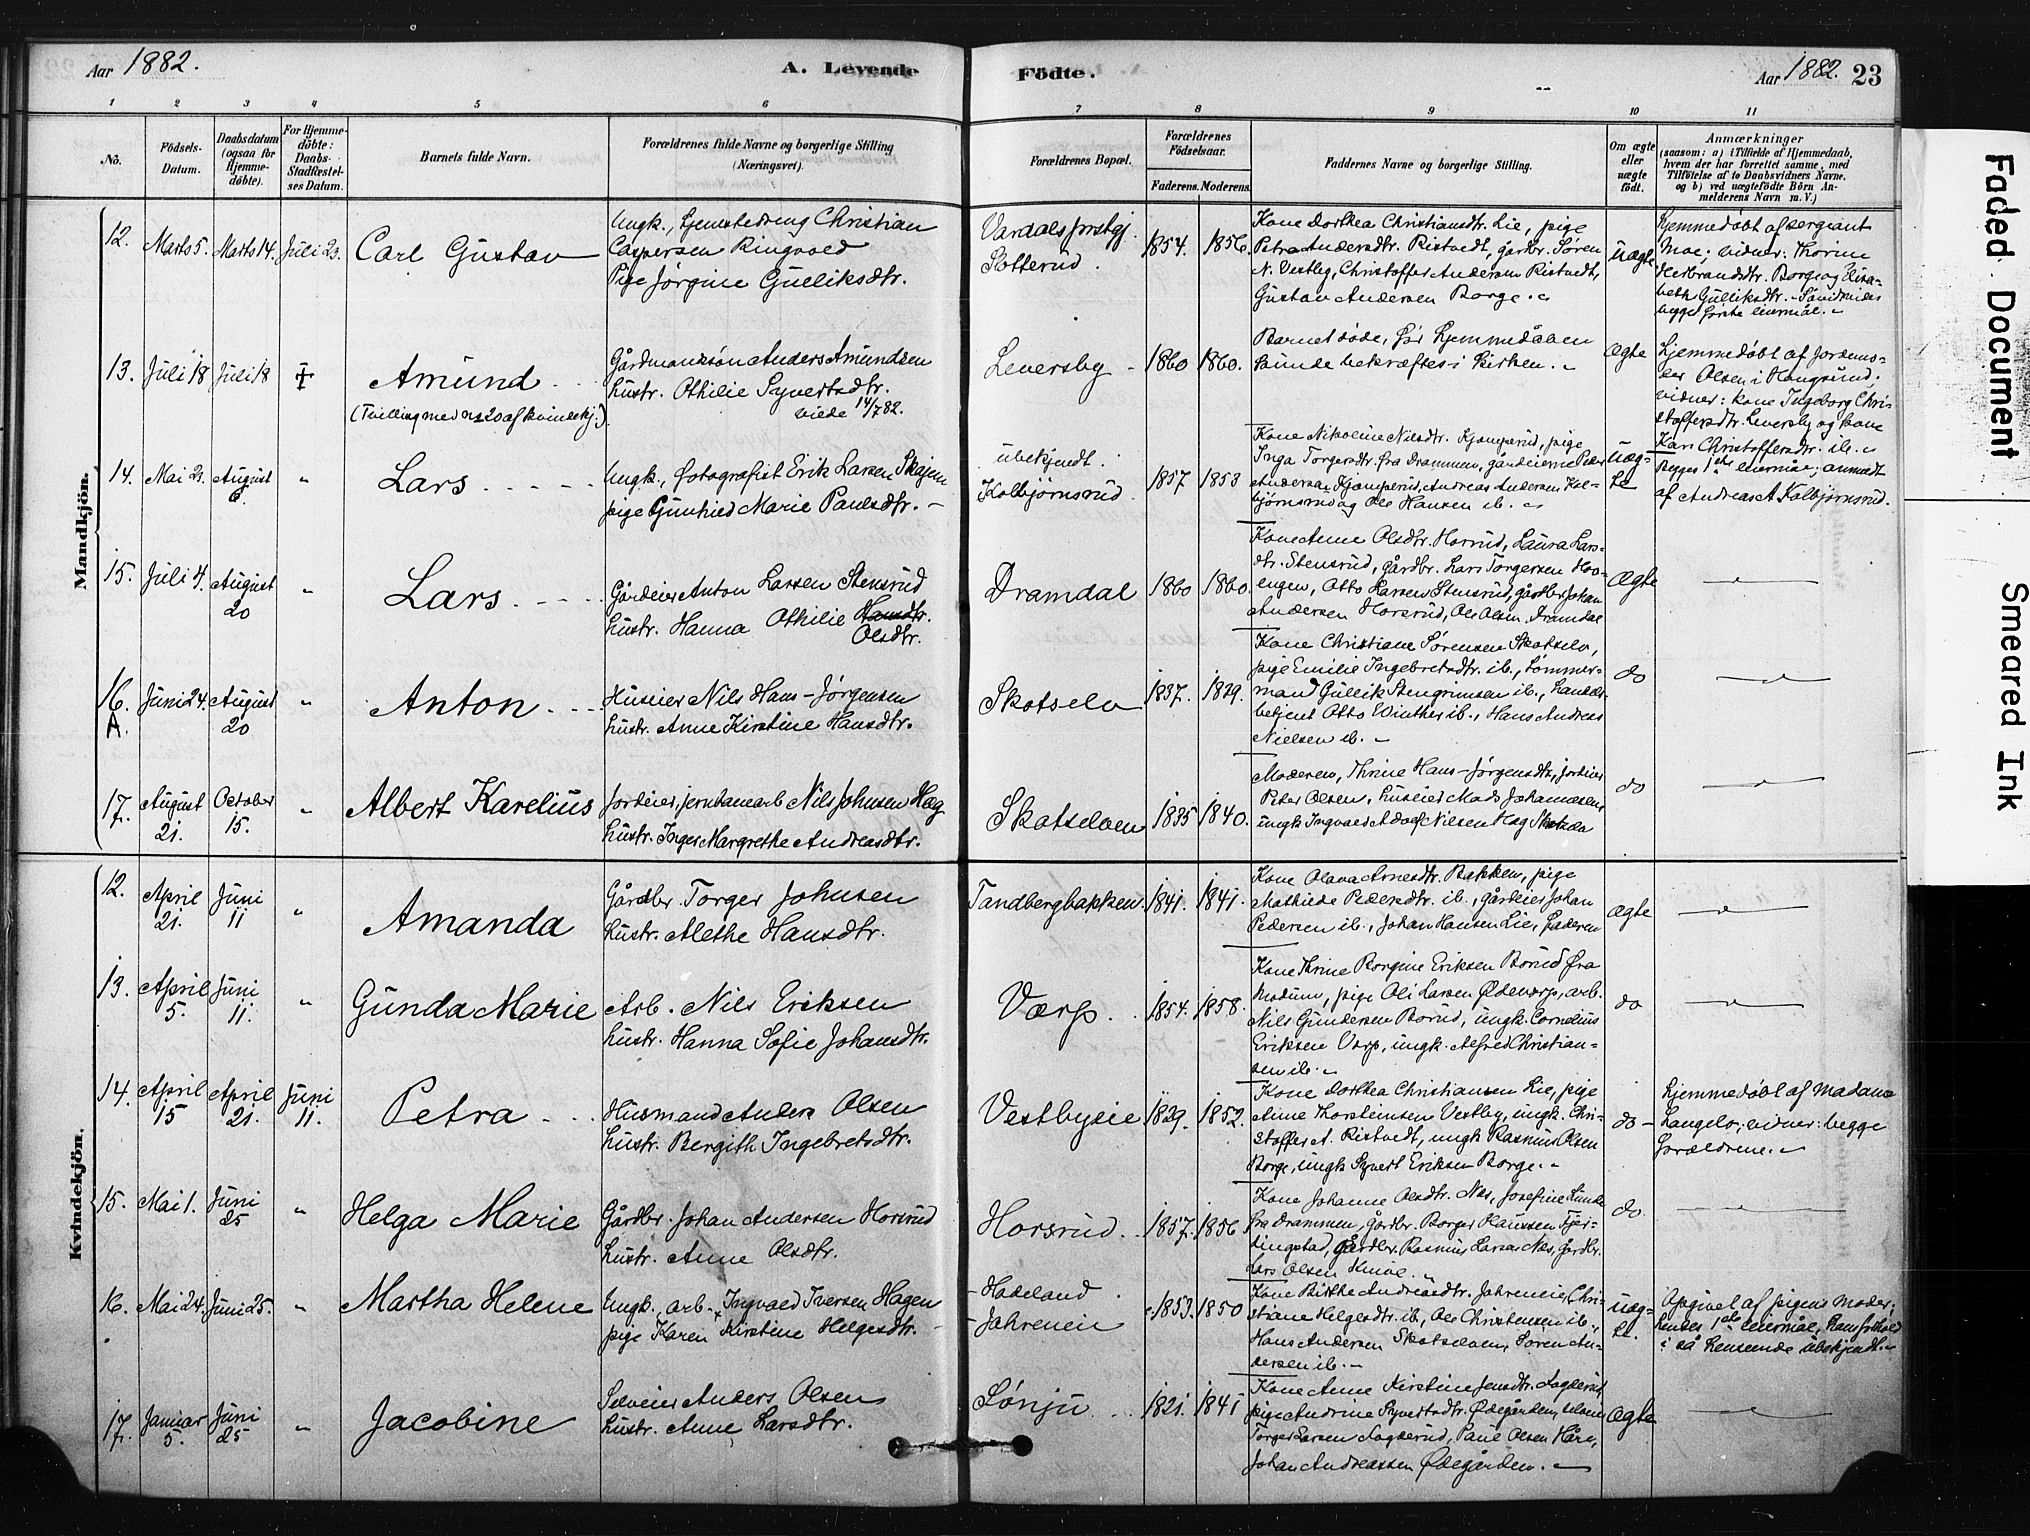 Aar 1882.
A. Levende
Födte.
Aar 1882. 23
1 2 3 4 5 6 7 8 9 10 11
No.
Födsels-
Datum.
Daabsdatum
(ogsaa for
Hjemme-
döbte).
For Hjemme-
döbte:
Daabs-
Stadfæstel-
ses Datum.
Barnets fulde Navn.
Forældrenes fulde Navne og borgerlige Stilling
(Næringsvei).
Forældrenes Bopæl.
Forældrenes
Födselsaar.
Faderens. Moderens.
Faddernes Navne og borgerlige Stilling.
Om ægte
eller
uægte
født.
Anmærkninger
(saasom: a) i Tilfælde af Hjemmedaab,
hvem der har forrettet samme, med
Tilføielse af to Daabsvidners Navne.
og b) ved uægtefödte Börn An-
melderens Navn m. V.)
Mandkjön.
12. Marts 5. Marts 14. Juli 23. Carl Gustav
Ungk., Christian
Caspersen Ringvold
Pige Jørgine Gulliksdtr.
Slotterud.
1854. 1856.
Kone Dorthea Christiansdtr. Lie, pige
Petra Andersdtr. Ristvedt, gårdbr. Søren
N. Vestby, Christoffer Andersen Ristvedt,
Gustav Andersen Borge.
uægte
Hjemmedøbt af sergeant
Moe; vidner: Thorine
Borge og Elisa-
beth Gulliksdtr.
13. Juli 18 Juli 18 Amund
(Tvilling med no 20 af kvindekj.)
Gårdmandsøn Anders Amundsen
hustr. Othilie Syvertsdtr.
viede 14/7 82.
Leversby
1860 1860.
Barnet døde, før hjemmedåben
kunde bekræftes i kirken.
Ægte
Hjemmedøbt af jordemo-
der Olsen i Hougsund;
vidner: kone Ingeborg Chri-
stoffersdtr. Leversby og kone
Kari Christoffersdtr. ib.
14. Mai 23. August 6. " Lars
Ungk., fotografist Erik Larsen Skajem
pige Gunhild Marie Paulsdtr.
ubekjendt.
Kolbjørnsrud
1857 1853
Kone Nikoline Nilsdtr. Kjomperud, pige
Inga Torgersdtr. fra Drammen, gårdeierne Peder
Andersen Kjomperud, Andreas Andersen Kol-
bjørnsrud og Ole Hansen ib.
uæg-
te
Begges 1ste leiermål; anmeldt
af Andreas A. Kolbjørnsrud.
15. Juli 4. August 20 " Lars
Gårdeier Anton Larsen Stensrud
hustr. Hanna Othilie Hansdtr.
Olsdtr.
Dramdal
1860 1860.
Kone Anne Olsdtr. Horsrud, Laura Lars-
dtr. Stensrud, gårdbr. Lars Torgersen Hoo-
engen, Otto Larsen Stensrud, gårdbr. Johan
Andersen Horsrud, Ole Olsen Dramdal
Ægte
16. A. Juni 24. August 20 " Anton
Huseier Nils Hans-Jørgensen
hustr. Anne Kirstine Hansdtr.
Skotselv
1837. 1839.
Kone Christiane Sørensen Skotselv,
pige Emilie Ingebretsdtr. ib., tømmer-
mand Gullik Stengrimsen ib., handels-
betjent Otto Winther ib., Hans Andreas
Nielsen ib.
do
17. August 21. October 15. " Albert Karelius
Jordeier, jernbanearb. Nils Johnsen Hag
hustr. Inger Margrethe Andreasdtr.
Skotselven
1835 1840.
Moderen, Thrine Hans-Jørgensdtr., jordeier
Peter Olsen, huseier Mads Johannesen,
ungk. Ingvald Adolf Nilsen Hag
do
Kvindekjön.
12. April 21. Juni 11 " Amanda
Gårdbr. Torger Johnsen
hustr. Alethe Hansdtr.
Tandbergbakken
1841. 1841.
Kone Olava Arnesdtr. Bakken, pige
Mathilde Pedersdtr. ib., gårdeier Johan
Pedersen ib., Johan Hansen Lie, faderen
ægte
13. April 5. Juni 11. " Gunda Marie
Arb. Nils Eriksen
hustr. Hanna Sofie Johansdtr.
Varp.
1854. 1858.
Kone Thrine Borgine Eriksen Borud fra
Modum, pige Oli Larsen, arb.
Nils Gundersen Borud, ungk. Cornelius
Eriksen Varp, ungk. Alfred Christian-
sen ib.
do
14. April 15 April 21. Juni 11. Petra
Husmand Anders Olsen
hustr. Bergith Ingebretsdtr.
Vestbyeie
1829. 1852.
Kone Dorthea Christiansen Lie, pige
Anne Thorsteinsen Vestby, ungk. Chri-
stoffer A. Ristvedt, ungk. Rasmus Olsen
Borge, ungk. Syvert Eriksen Borge.
do
Hjemmedøbt af Madame
Langelo; vidner: begge
forældrene.
15. Mai 1. Juni 25 " Helga Marie
Gårdbr. Johan Andersen Horsrud
hustr. Anne Olsdtr.
Horsrud
1857. 1856
Kone Johanne Olsdtr. Næs, Josefine Lunde
fra Drammen, gårdbr. Borger Klaussen Fjer-
dingstad, gårdbr. Rasmus Larsen Næs, gårdbr.
Lars Olsen
do
16. Mai 24. Juni 25. " Martha Helene
Ungk., arb. Ingvald Iversen Hagen
pige Karen Kirstine Helgesdtr.
Hadeland
Jahreneie
1853. 1850
Kone Birthe Andreasdtr. Jahreneie, Chri-
stiane Helgesdtr. ib., Ole Christensen ib.,
Hans Andersen Skotselven, Søren An-
dersen ib.
uæg-
te.
Opgivet af pigens moder;
hendes 1ste leiermål, hans forhold
i så henseende ubekjendt.
17. Januar 5. Juni 25 " Jacobine
Selveier Anders Olsen
hustr. Anne Larsdtr.
Sønju
1821. 1841
Kone Anne Kirstine Jensdtr.
pige Andrine Syvertsdtr. Ødegården,
Torger Larsen, Paul Olsen Håre,
Johan Andreassen Ødegården.
Ægte
Faded Document
Smeared Ink